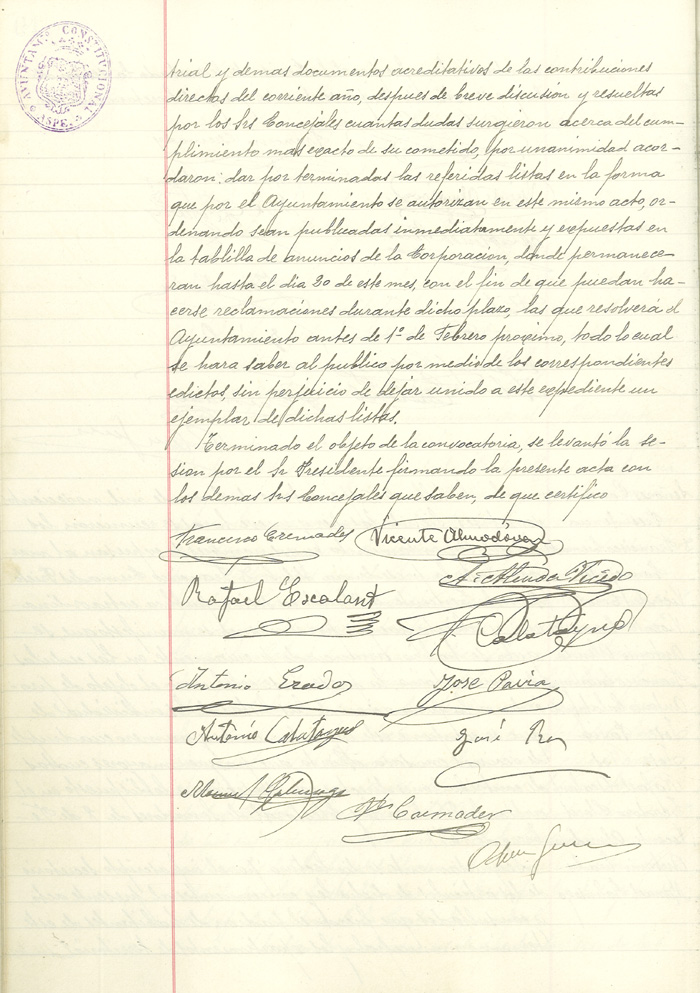 AYUNTAMº CONSTITUCIONAL
ASPE
trial y demas documentos acreditativos de las contribuciones
directas del corriente año, despues de breve discusion y resueltas
por los Srs Concejales cuantas dudas surgieron acerca del cum-
plimiento mas exacto de su cometido, por unanimidad acor-
daron: dar por terminadas las referidas listas en la forma
que por el Ayuntamiento se autorizan en este mismo acto, or-
denando sean publicadas inmediatamente y expuestas en
la tablilla de anuncios de la Corporacion, donde permanece-
ran hasta el dia 20 de este mes, con el fin de que puedan ha-
cerse reclamaciones durante dicho plazo, las que resolverá el
Ayuntamiento antes de 1º de Febrero proximo, todo lo cual
se hara saber al publico por medio de los correspondientes
edictos, sin perjuicio de dejar unido a este expediente un
ejemplar de dichas listas.
Terminado el objeto de la convocatoria, se levantó la se-
sion por el Sr Presidente firmando la presente acta con
los demas Srs Concejales que saben, de que certifico
Francisco Cremades Vicente Almodóvar
Rafael Escolant
Calatayud
Antonio José Pavia
Antonio Calatayud José
Manuel
Cremades